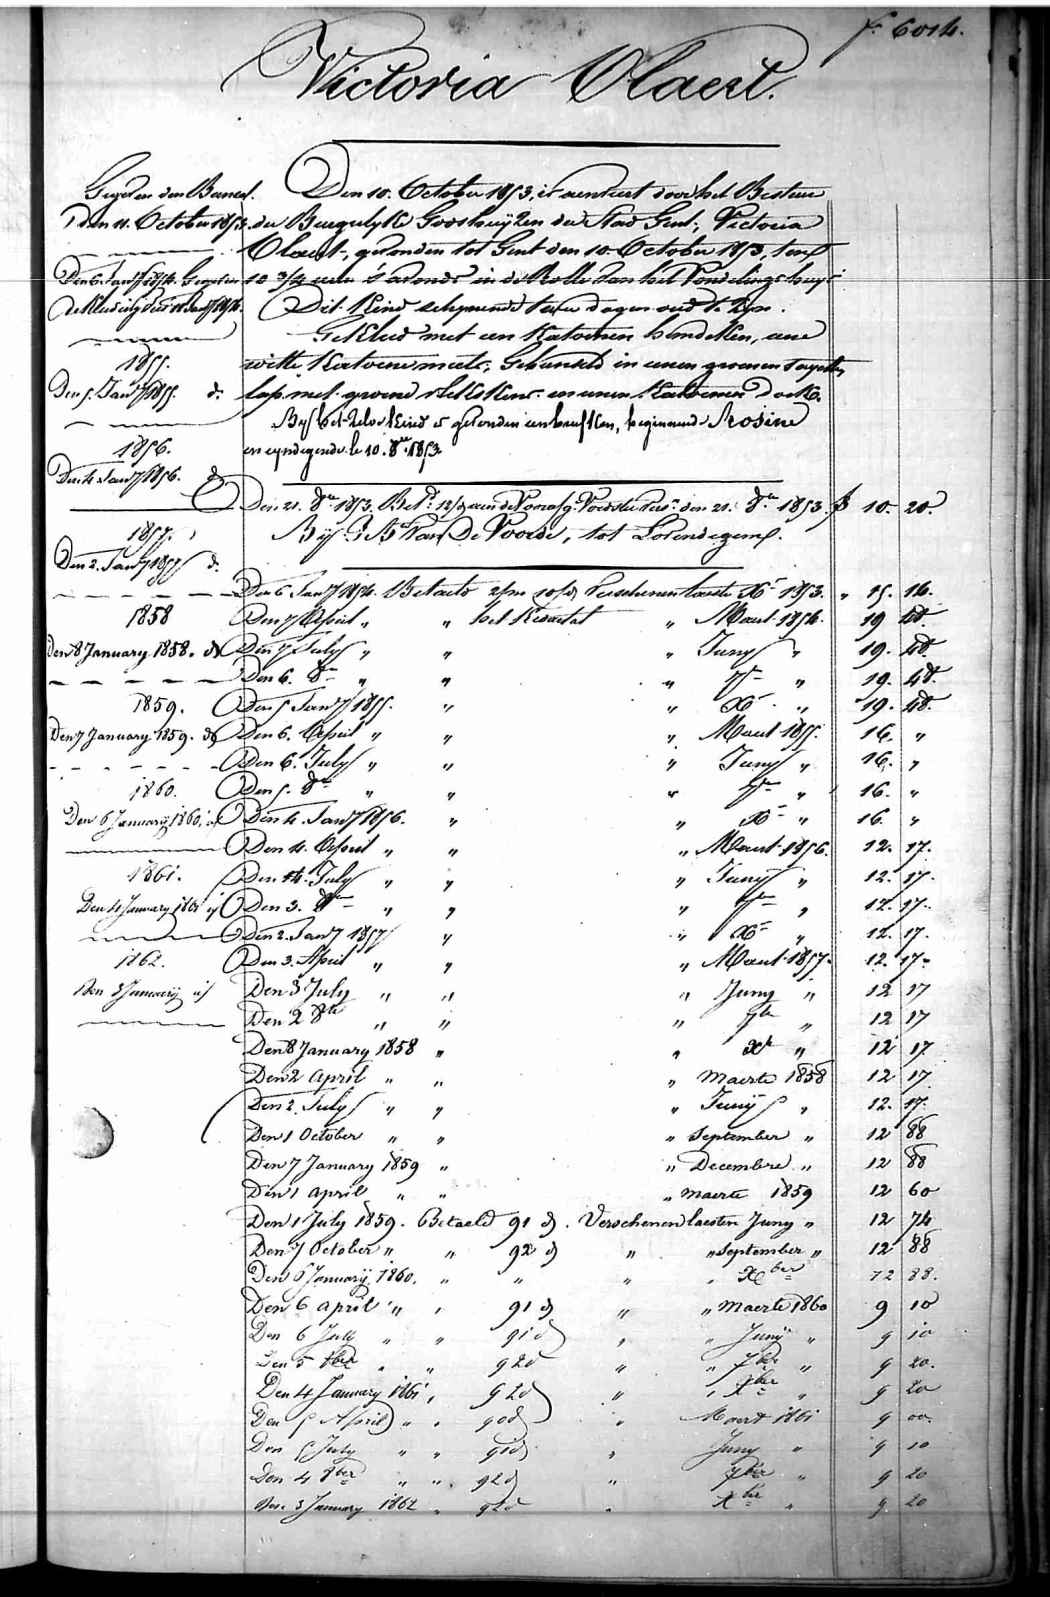 f° 6014.
Victoria Olaert.
Den 10. October 1853, is aenveert door het Bestuer
der Burgerlyke Godshuyzen der Stad Gent; Victoria
Olaert, gevonden tot Gent den 10. October 1853, ten
10 3/4 uren 's avonds in de Rolle van het Vondelingshuys
Dit Kind schynende twee dagen oud te zyn.
Gekleed met een Katoenen hemdeken, eene
witte Katoene muts; Gebunseld in eenen groenen
lap met groene en eenen Katoenen doek.
By het zelve Kind is gevonden een briefken, beginnende Rosine
en eyndigende le 10. 8bre 1853.
den 11. October 1853.
1855.
Den 5. Jany 1855. do
1856.
Den 4. Jany 1856. do
1857.
Den 2. Jany 1857 do
1858
Den 8 January 1858. do
1859.
Den 7 January 1859. do
1860.
Den 6 Januarij 1860. id
1861.
Den 4 January 1861 id
1862.
Den 3 Januarij id
Den 21. 8bre 1853. den 21. 8bre 1853. f 10. 20.
By Van De Voorde, tot Lovendegem.
Den 6 Jany 1854. Betaeld Verschenen laesten Xbre 1853. " 15. 16.
Den 7 April " " het Kwartael " Maert 1854. 19 48.
Den 7 July " " " Juny " 19. 48.
Den 6. 8bre " " " 7bre " 19. 48.
Den 5 Jany 1855. " " Xbre " 19. 48.
Den 6. April " " " Maert 1855. 16. "
Den 6. July " " " Juny " 16. "
Den 5. 8bre " " " 7bre " 16. "
Den 4. Jany 1856. " " Xbre " 16. "
Den 4. April " " " Maert 1856. 12. 17.
Den 4. July " " " Juny " 12. 17.
Den 3. 8bre " " " 7bre " 12. 17.
Den 2. Jany 1857 " " Xbre " 12. 17.
Den 3. April " " " Maert 1857. 12. 17.
Den 3 July " " " Juny " 12 17
Den 2 8bre " " " 7bre " 12 17
Den 8 January 1858 " " Xbre " 12 17
Den 2 April " " " Maerte 1858 12 17
Den 2. July " " " Juny " 12. 17.
Den 1 October " " " September " 12 88
Den 7 January 1859 " " Decembre " 12 88
Den 1 April " " " Maerte 1859 12 60
Den 1 July 1859. Betaeld 91 d. Verschenen laesten Juny " 12 74
Den 7 October " " 92 d " " September " 12 88
Den 6 Januarij 1860. " " " " Xber 12 88.
Den 6 April " " 91 d " " Maerte 1860 9 10
Den 6 July " " 91 d " " Junij " 9 10
Den 5 8ber " " 92 d " " 7ber " 9 20.
Den 4 January 1861 " 92 d " " Xber " 9 20
Den 5 April " " 90 d " Maert 1861 9 00.
Den 5 July " " 91 d " Juny " 9 10
Den 4 8ber " " 92 d " 7ber " 9 20
Den 3 January 1862 " 92 d " Xber " 9 20